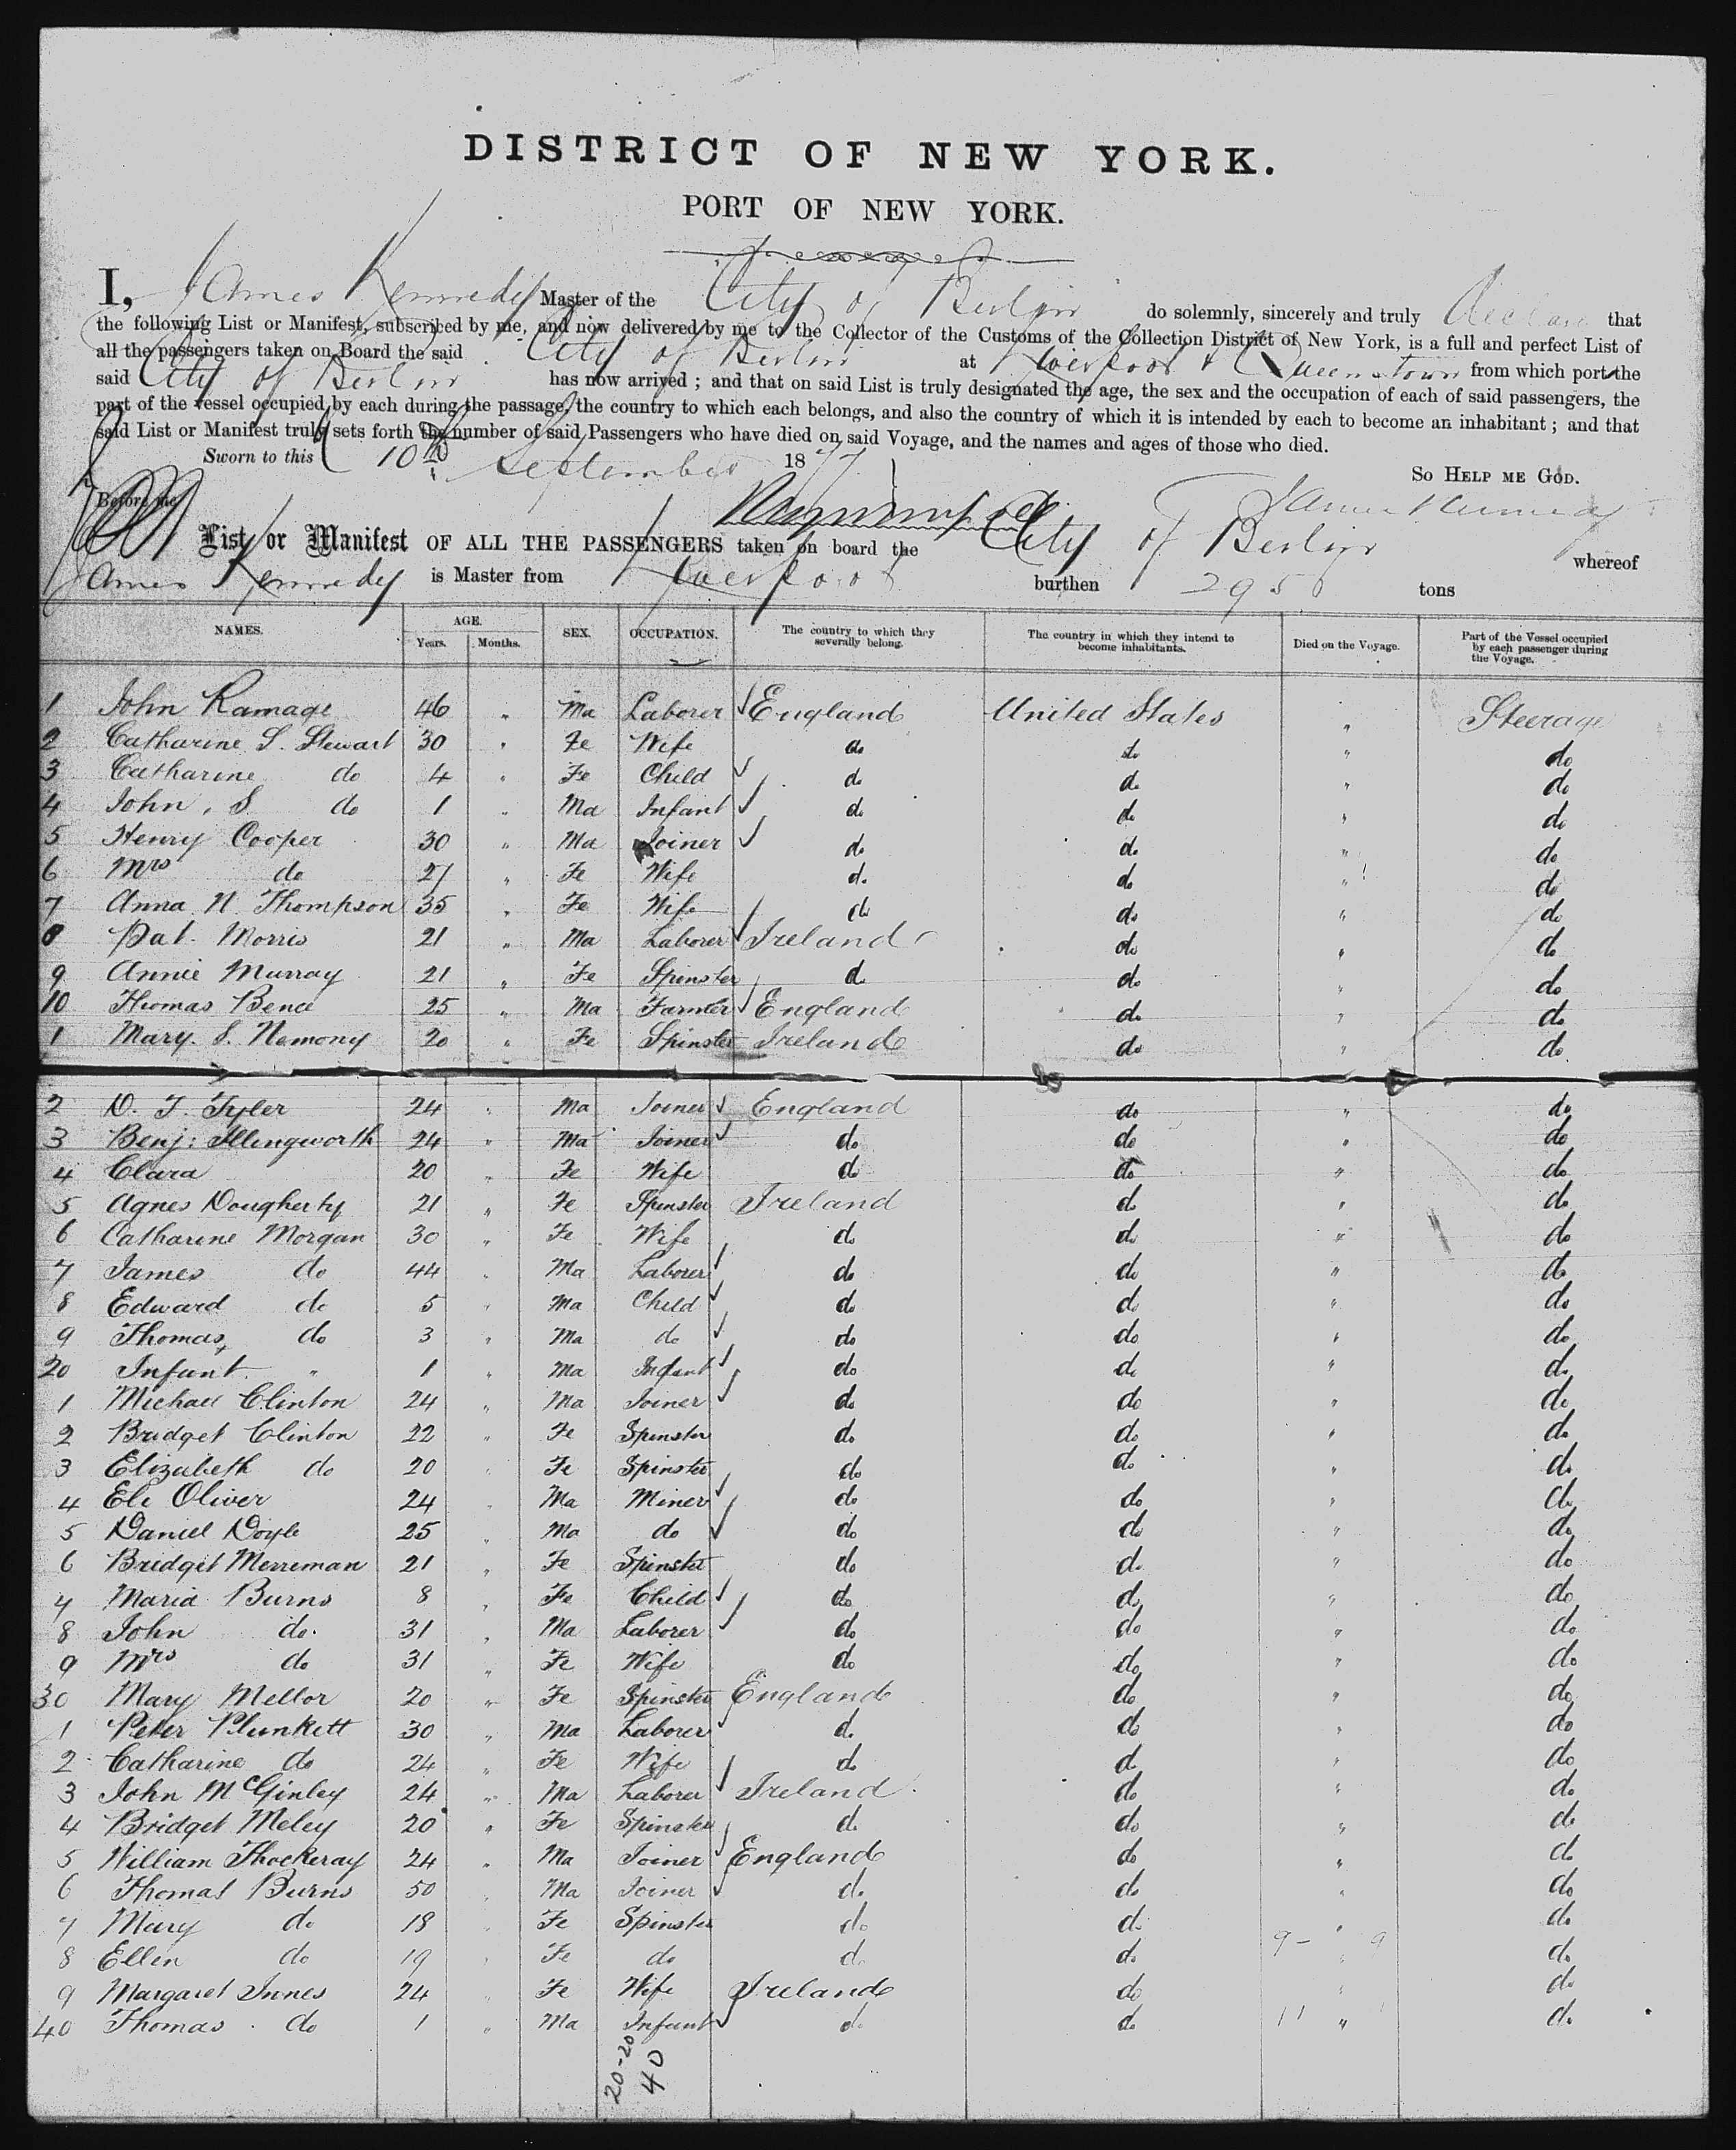 DISTRICT OF NEW YORK.
PORT OF NEW YORK.
I, James Kennedy Master of the City of Berlin do solemnly, sincerely and truly declare that
the following List or Manifest, subscribed by me, and now delivered by me to the Collector of the Customs of the Collection District of New York, is a full and perfect List of
all the passengers taken on Board the said City of Berlin at Liverpool & Queenstown from which port the
said City of Berlin has now arrived; and that on said List is truly designated the age, the sex and the occupation of each of said passengers, the
part of the vessel occupied by each during the passage, the country to which each belongs, and also the country of which it is intended by each to become an inhabitant; and that
said List or Manifest truly sets forth the number of said Passengers who have died on said Voyage, and the names and ages of those who died.
Sworn to this 10th September 1877 So Help me God.
Before me James Kennedy
List or Manifest OF ALL THE PASSENGERS taken on board the City of Berlin whereof
James Kennedy is Master from Liverpool burthen 295 tons
NAMES. AGE. Years. Months. SEX. OCCUPATION. The country to which they severally belong. The country in which they intend to become inhabitants. Died on the Voyage. Part of the Vessel occupied by each passenger during the Voyage.
1 John Ramage 46 " Ma Laborer England United States " Steerage
2 Catharine S. Stewart 30 " Fe Wife do do " do
3 Catharine do 4 " Fe Child do do " do
4 John. S do 1 " Ma Infant do do " do
5 Henry Cooper 30 " Ma Joiner do do " do
6 Mrs do 27 " Fe Wife do do " do
7 Anna N Thompson 35 " Fe Wife do do " do
8 Pat. Morris 21 " Ma Laborer Ireland do " do
9 Annie Murray 21 " Fe Spinster do do " do
10 Thomas Bence 25 " Ma Farmer England do " do
1 Mary. S. Nemony 20 " Fe Spinster Ireland do " do
2 D. T. Tyler 24 " Ma Joiner England do " do
3 Benj: Illingworth 24 " Ma Joiner do do " do
4 Clara 20 " Fe Wife do do " do
5 Agnes Dougherty 21 " Fe Spinster Ireland do " do
6 Catharine Morgan 30 " Fe Wife do do " do
7 James do 44 " Ma Laborer do do " do
8 Edward do 5 " Ma Child do do " do
9 Thomas do 3 " Ma do do do " do
20 Infant " 1 " Ma Infant do do " do
1 Michael Clinton 24 " Ma Joiner do do " do
2 Bridget Clinton 22 " Fe Spinster do do " do
3 Elizabeth do 20 " Fe Spinster do do " do
4 Eli Oliver 24 " Ma Miner do do " do
5 Daniel Doyle 25 " Ma do do do " do
6 Bridget Merreman 21 " Fe Spinster do do " do
7 Maria Burns 8 " Fe Child do do " do
8 John do 31 " Ma Laborer do do " do
9 Mrs do 31 " Fe Wife do do " do
30 Mary Mellor 20 " Fe Spinster England do " do
1 Peter Plunkett 30 " Ma Laborer do do " do
2 Catharine do 24 " Fe Wife do do " do
3 John McGinley 24 " Ma Laborer Ireland do " do
4 Bridget Meley 20 " Fe Spinster do do " do
5 William Thockeray 24 " Ma Joiner England do " do
6 Thomas Burns 50 " Ma Joiner do do " do
7 Mary do 18 " Fe Spinster do do " do
8 Ellen do 19 " Fe do do do 9 - " 9 do
9 Margaret Innes 24 " Fe Wife Ireland do " do
40 Thomas do 1 " Ma Infant do do 11 " do
20-20
40